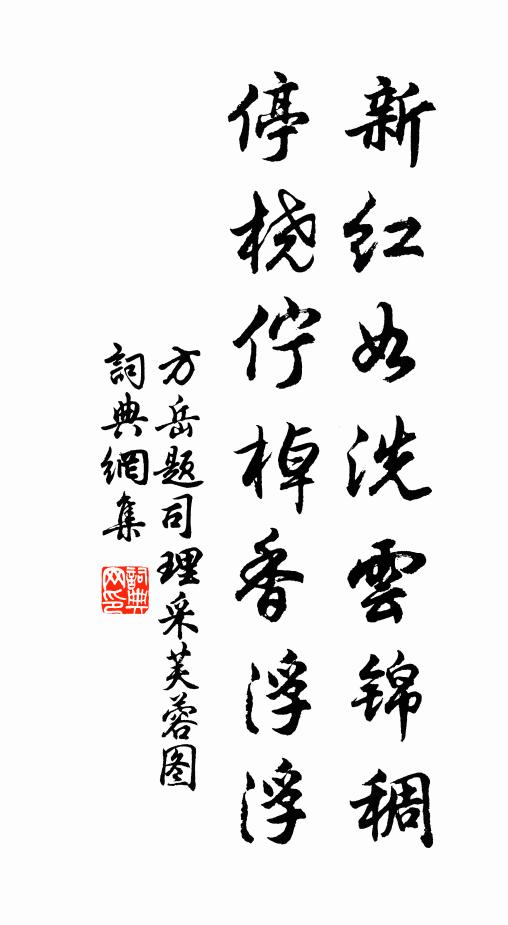 新红如洗雲锦稠
停桡佇棹香浮浮
方岳题司理采芙蓉图
詞典網集
詞典网印